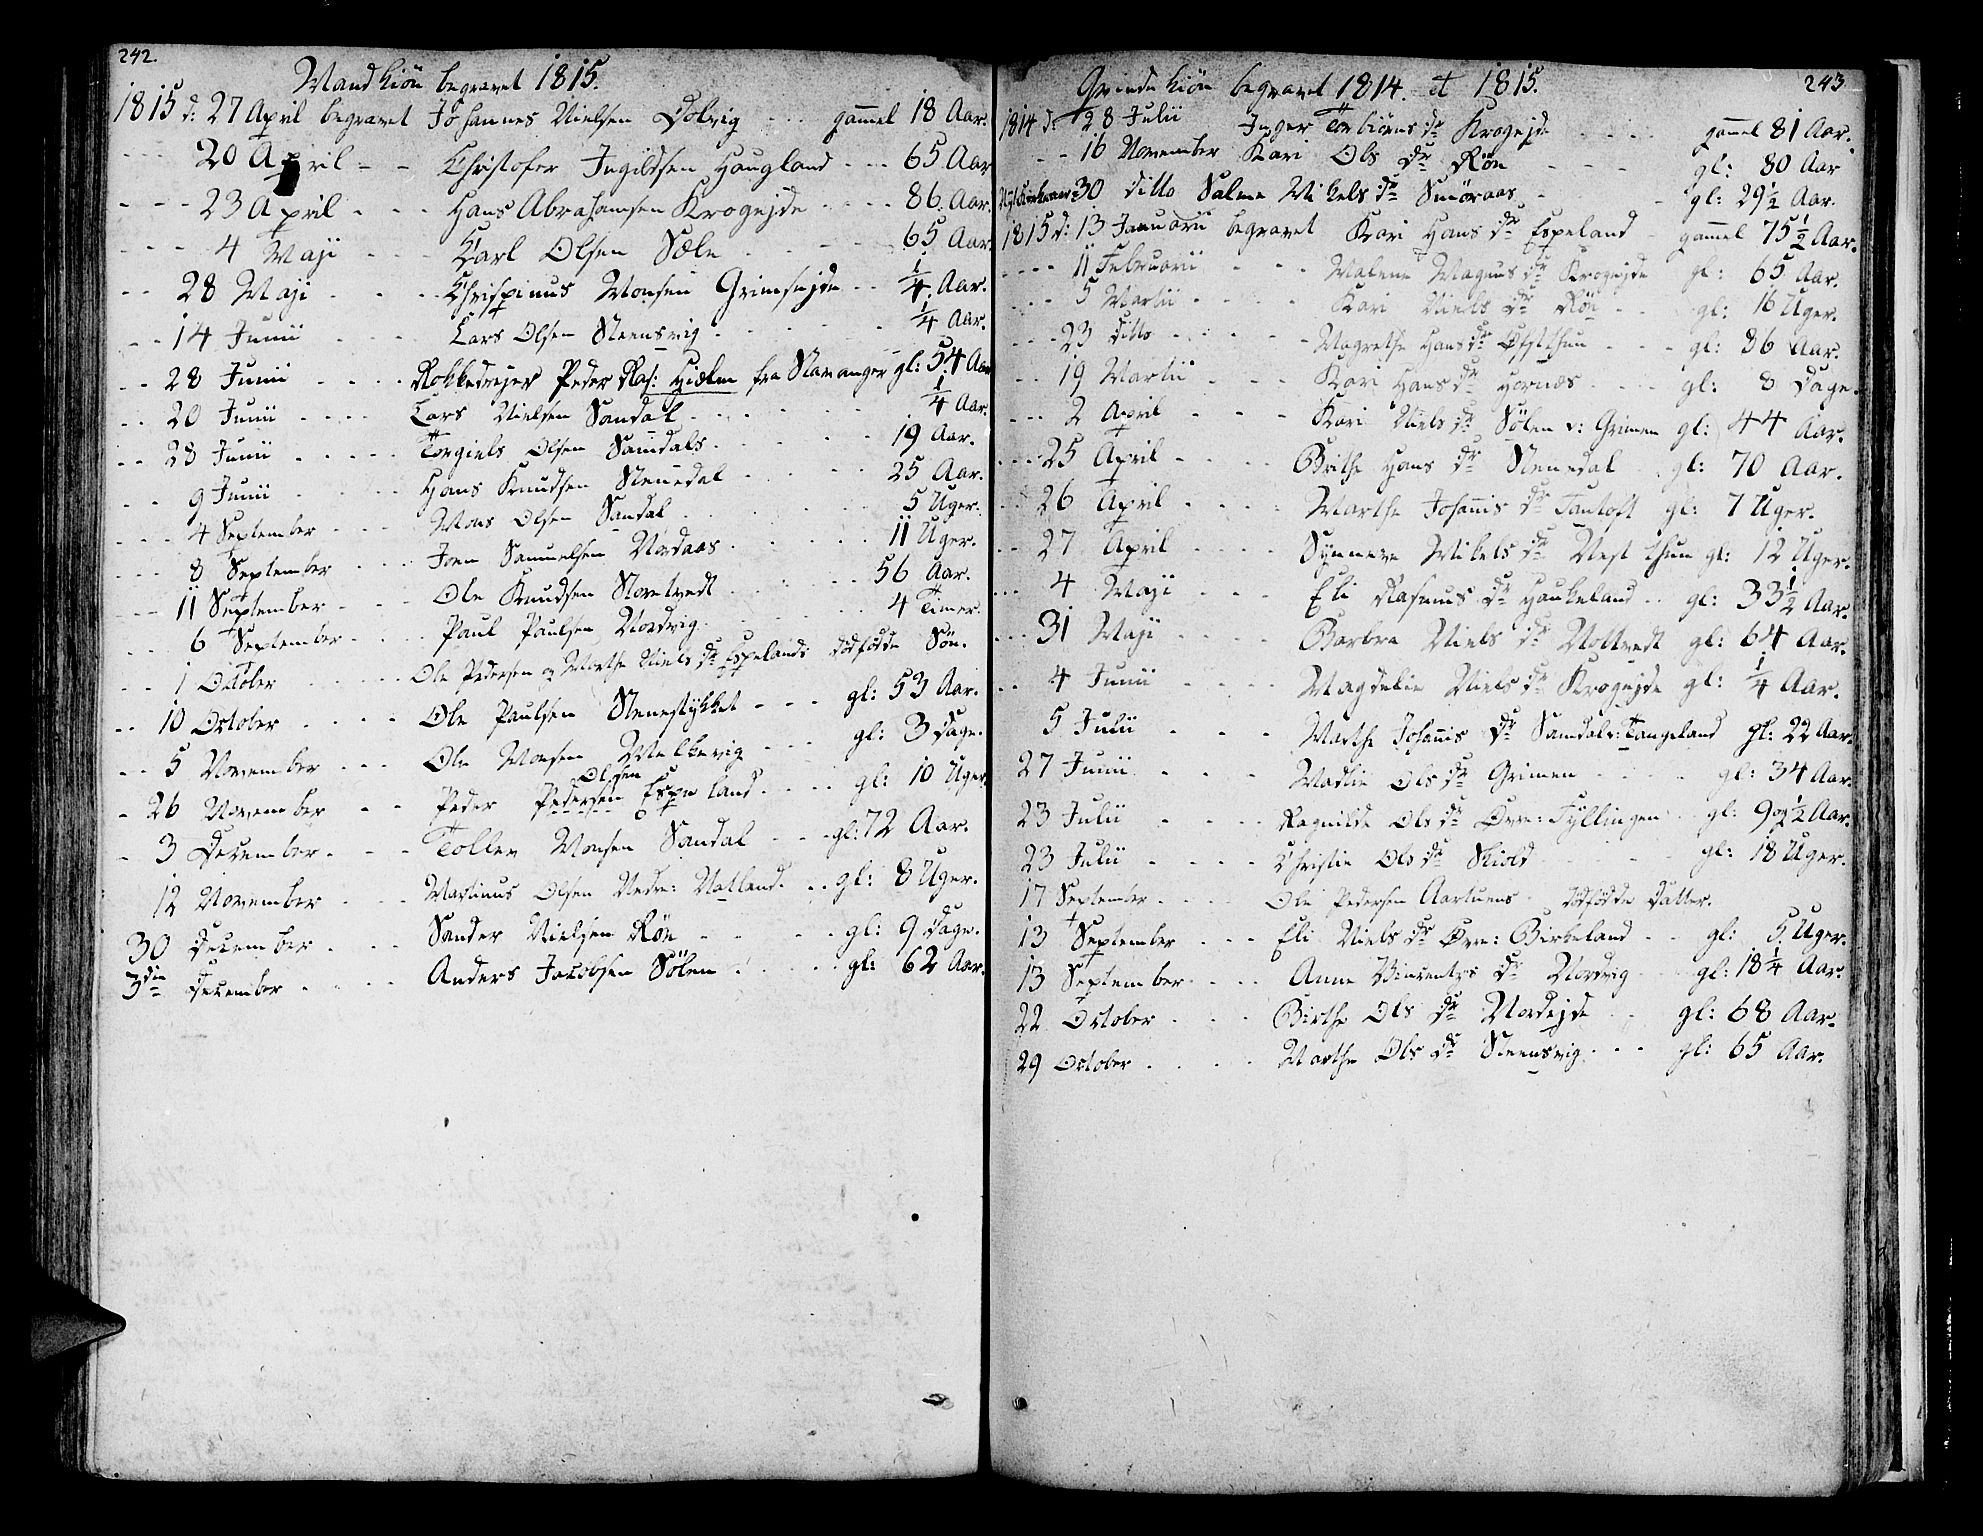 242.
Mandkiön begravet 1815.
1815 d: 27 April begravet Johannes Nielsen Dolvig - - - gammel 18 Aar.
- - - 20 April - - Christofer Ingildsen Haugland - - - 65 Aar
- - - 23 April - - - Hans Abrahamsen Krogejde - - - - 86. Aar.
- - - 4 Maji - - - Karl Olsen Sæle - - - - - 65 Aar.
- - 28 Maji - - - - Chrispinus Monsen Grimsejde - - 1/4. Aar.
- - 14 Junii - - - Lars Olsen Steensvig - - - - - 1/4 Aar.
- - 28 Junii - - - - Rokkedrejer Peder Ras: Hiælm fra Stavanger gl: 54 Aar
- - 20 Junii - - - - Lars Nielsen Sandal - - - - - - 1/4 Aar.
- - 28 Junii - - - - - Torgiels Olsen Samdals - - - - - 19 Aar.
- - 9 Junii - - - - Hans Knudsen Stenedal - - - - - 25 Aar.
- - - 4 September - - - Mons Olsen Sandal - - - - - - 5 Uger.
- - - 8 September - - - Joen Samuelsen Nordaas - - - - - 11 Uger.
- - - 11 September - - - Ole Knudsen Storetvedt - - - - - 56 Aar.
- - - 6 September - - - - Paul Paulsen Nordvig - - - - - 4 Timer.
- - 1 October - - - - - Ole Pedersen og Marthe Niels dr Espelands dödfödde Sön.
- - 10 October - - - - Ole Paulsen Stenestykket - - - gl: 53 Aar.
- - 5 November - - - Ole Monsen Melkevig - - - gl: 3 Dage.
Olsen
- 26 November - - Peder Pedersen Espeland - - - - gl: 10 Uger
- 3 December - - - Tollev Monsen Sandal - - - gl: 72 Aar.
12 November - - - Martinus Olsen Nedre: Natland. - - gl: 8 Uger.
30 December - - - Sander Nielsen Röe - - - - - gl: 9 Dage.
3die December - - - - Anders Jacobsen Sölen - - - - - gl: 62 Aar.
243
Qvindekiön begravet 1814. et 1815.
1814 d: 28 Julii Inger Torbiörns dr Krogejde - - - - gammel 81 Aar.
- - 16 November Kari Ols dr Röe - - - gl: 80 Aar
30 ditto Salme Mikels dr Smöraas - - - gl: 29 1/2 Aar.
1815 d: 13 Januarii begravet Kari Hans dr Espeland - gammel 75 1/2 Aar.
- - - - 11 Februarii - - - Malene Magnus dr Krogejde gl: 65 Aar.
- - - 5 Martii - - - - Kari Niels dr Röe - - - gl: 16 Uger.
- - - 23 ditto - - - - - Magrethe Hans dr Öfstthun - - - gl: 86 Aar.
- - 19 Martii - - - Kari Hans dr Hornæs - - - - gl: 8 Dage.
- - - 2 April - - - Kari Niels dr Sölen v: Grimen gl: 44 Aar.
- - - 25 April - - - - Brithe Hans dr Stenedal gl: 70 Aar.
- - 26 April - - - - Marthe Johanis dr Tantoft gl: 7 Uger.
- - 27 April - - - - Synneve Mikels dr Nestthun gl: 12 Uger.
- - - 4 Maji - - - Eli Rasmus dr Haukeland - - gl: 33 1/2 Aar.
- - - 31 Maji - - - - Barbra Niels dr Nottvedt gl: 64 Aar.
- - 4 Junii - - - - Magdelie Niels dr Krogejde gl: 1/4 Aar.
5 Julii - - - Marthe Johanis dr Samdal v: Tangeland gl: 22 Aar.
27 Junii - - - Madlie Ols dr Grimen - - - - gl: 34 Aar.
23 Julii - - - - Ragnilde Ols dr Övre: Tyllingen gl: 9 og 1/2 Aar.
23 Julii - - - - Christie Ols dr Skiold - - - gl: 18 Uger.
17 September - - - - Ole Pedersen Aartuens dödfödde Datter.
13 September - - - Eli Niels dr Övre: Birkeland - - gl: 5. Uger.
13 September - - - - Anne Vincentzs dr Nordvig - - gl: 18 1/4 Aar.
22 October - - - Birthe Ols dr Nordejde - - gl: 68 Aar.
29 October - - - - Marthe Ols dr Steensvig - - - gl: 65 Aar.